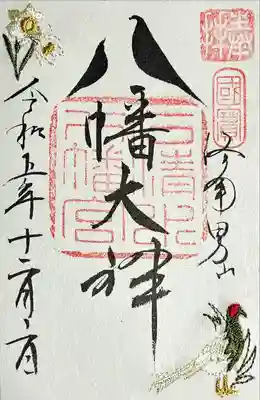 國寶
洛南男山
八幡大神
石清水
八幡宮
令和五年十二月
日